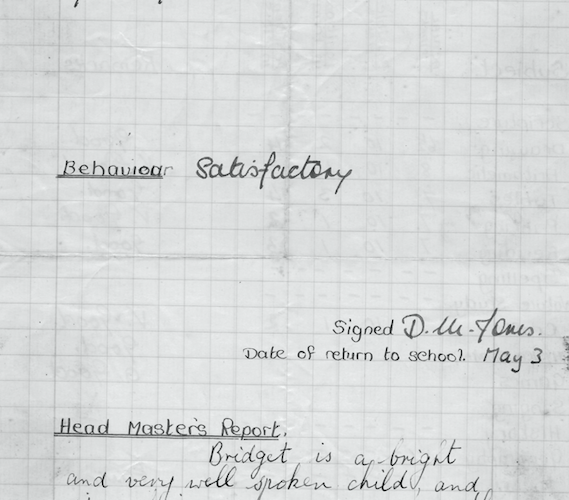 Behaviour Satisfactory
Signed D. M. Jones.
Date of return to school. May 3
Head Master's Report.
Bridget is a bright
and very well spoken child, and,